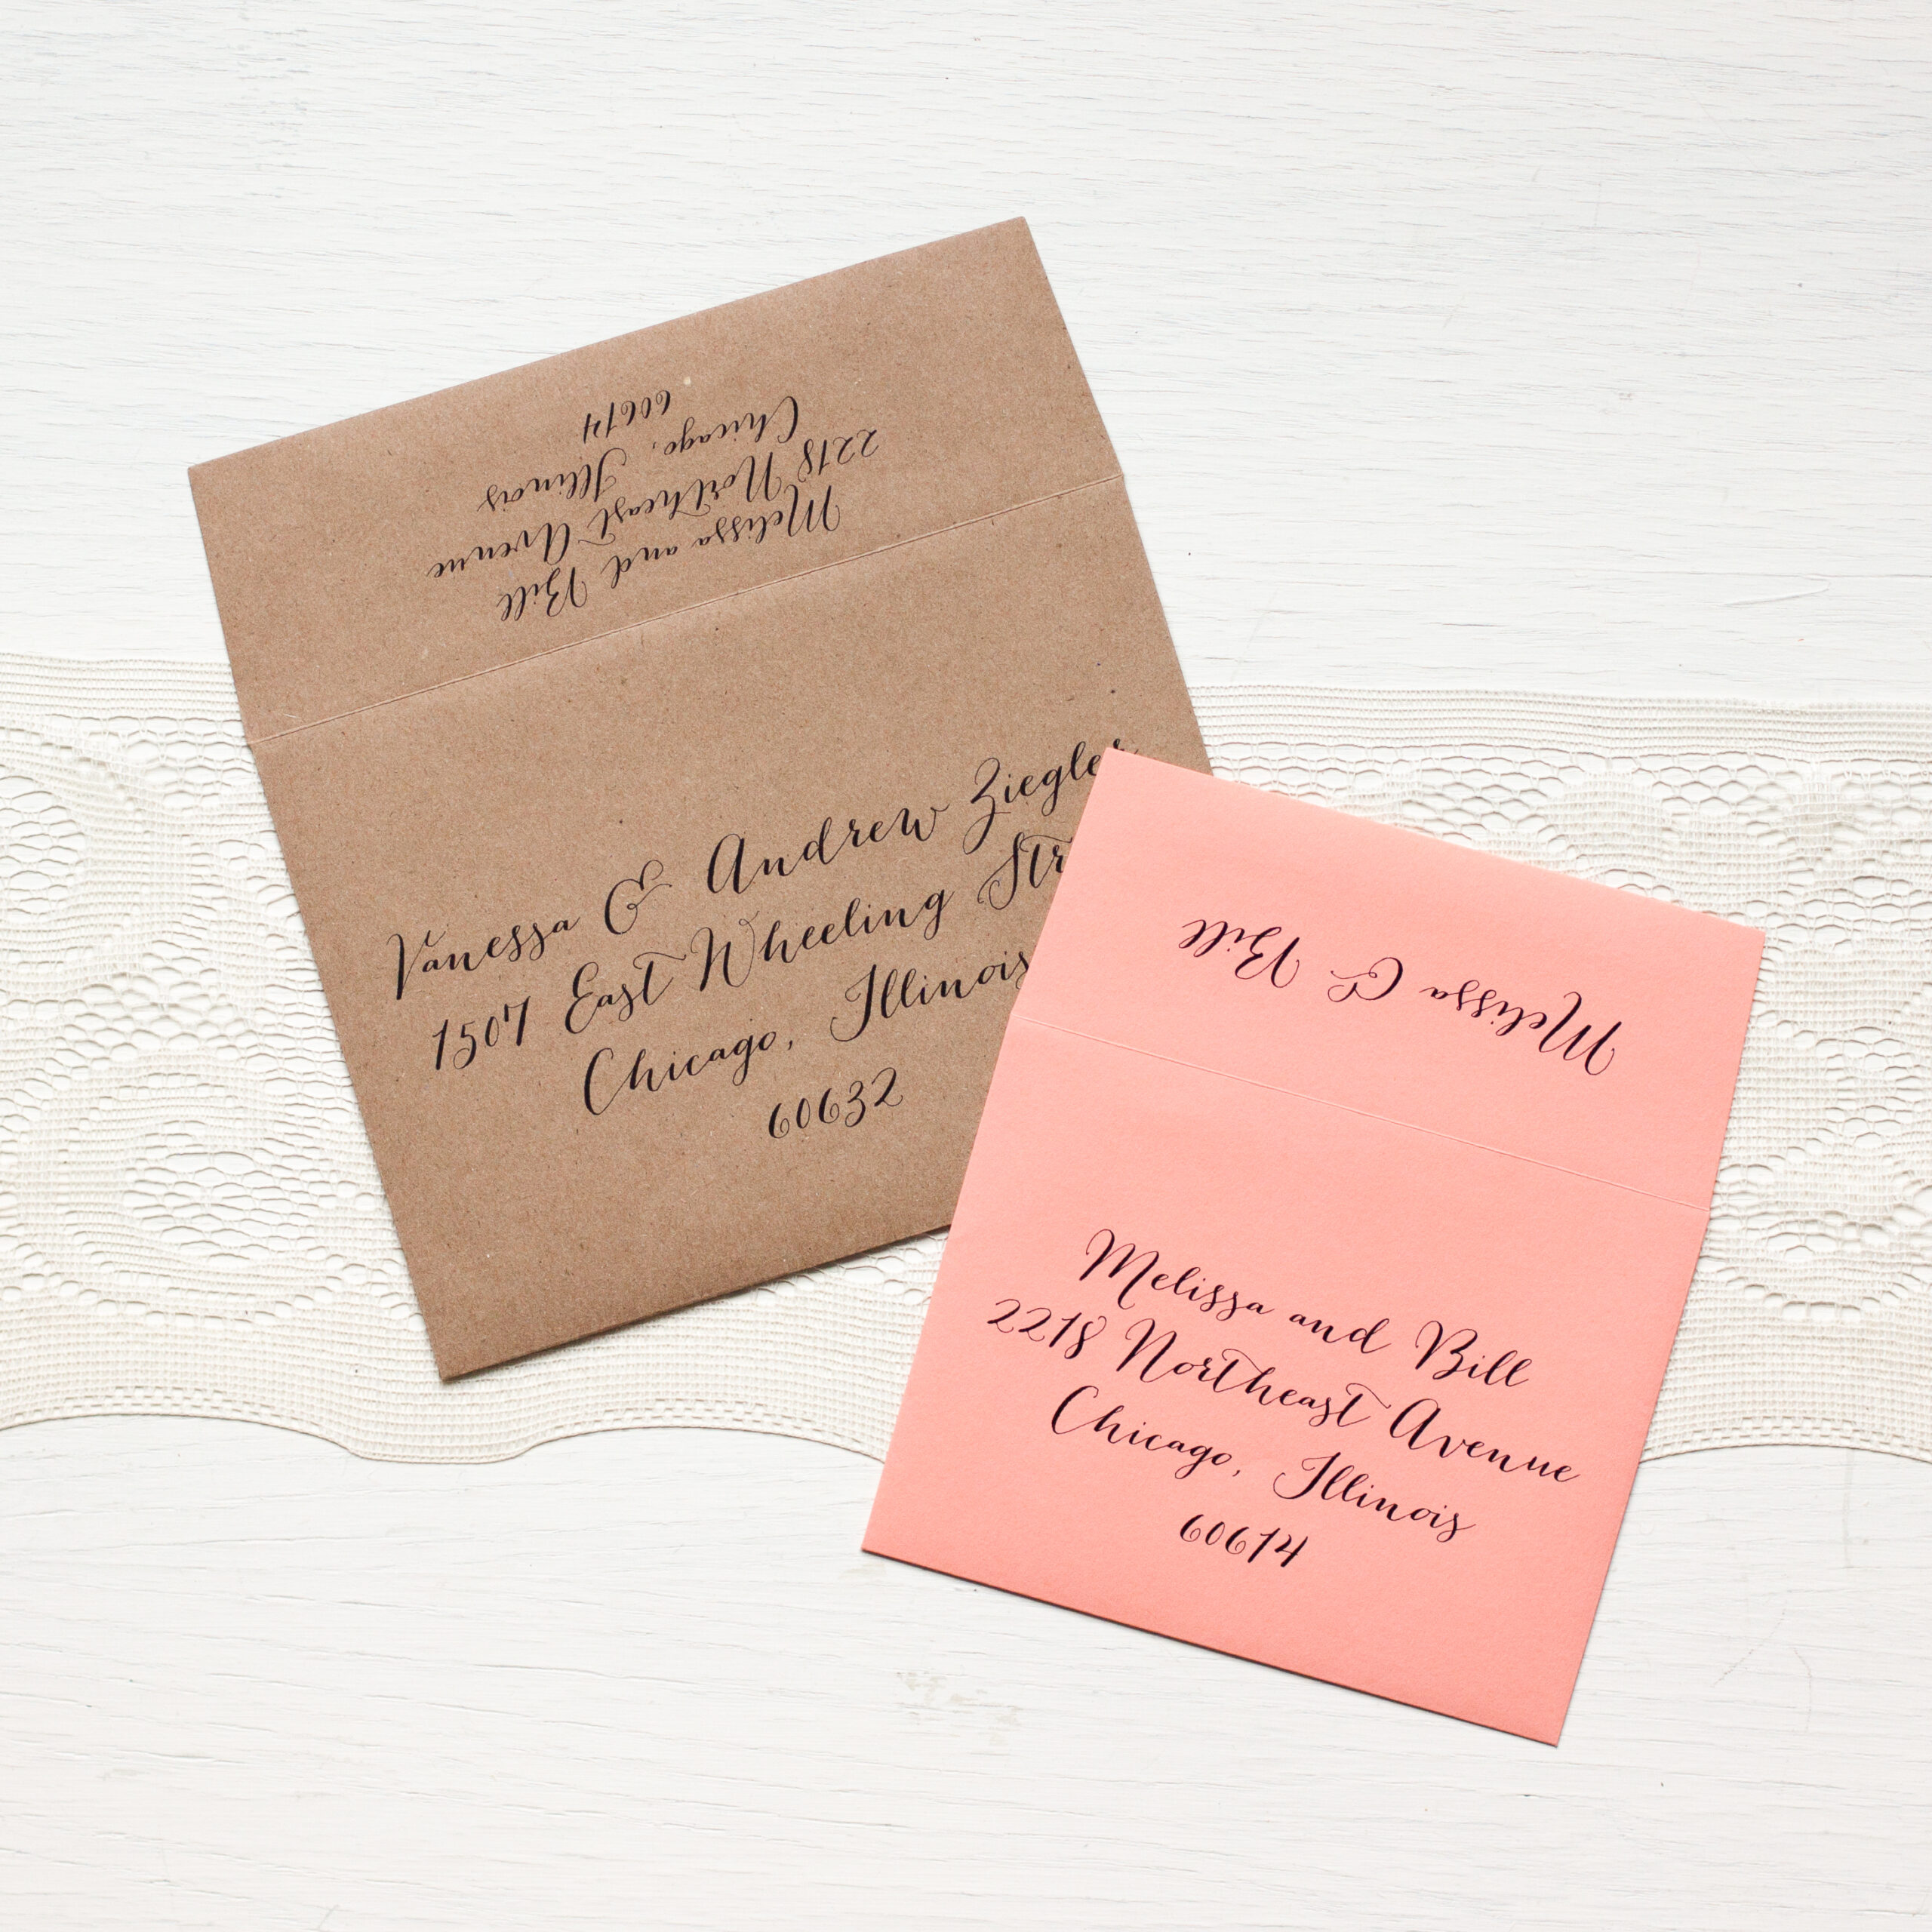 Melissa and Bill
2218 Northeast Avenue
Chicago, Illinois
60614
Vanessa & Andrew Ziegler
1507 East Wheeling Str
Chicago, Illinois
60632
Melissa & Bill
Melissa and Bill
2218 Northeast Avenue
Chicago, Illinois
60614